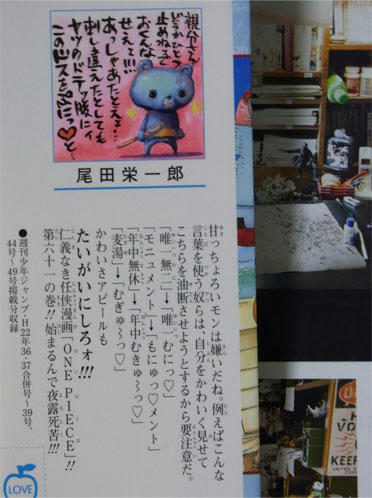 親分さん
どうかひとつ
止めねェで
おくんな
せェ…!!!
あっしゃあたとえ…
刺し違えたとしても
ヤツのドテッ腹にィ
このドスをぷにっ♥と…
尾田栄一郎
甘っちょろいモンは嫌いだね。例えばこんな
言葉を使う奴らは、自分をかわいく見せて
こちらを油断させようとするから要注意だ。
「唯一無二」→「唯一むにっ♡」
「モニュメント」→「もにゅっ♡メント」
「年中無休」→「年中むきゅ〜っ♡」
「麦湯」→「むぎゅ〜っ♡」
かわいさアピールも
たいがいにしろォ!!!
仁義なき任侠漫画「ONE PIECE」!!
第六十一の巻!! 始まるんで夜露死苦!!!
●週刊少年ジャンプ・H22年36・37合併号〜39号、
44号〜49号掲載分収録
LOVE
HI
VO
KEE